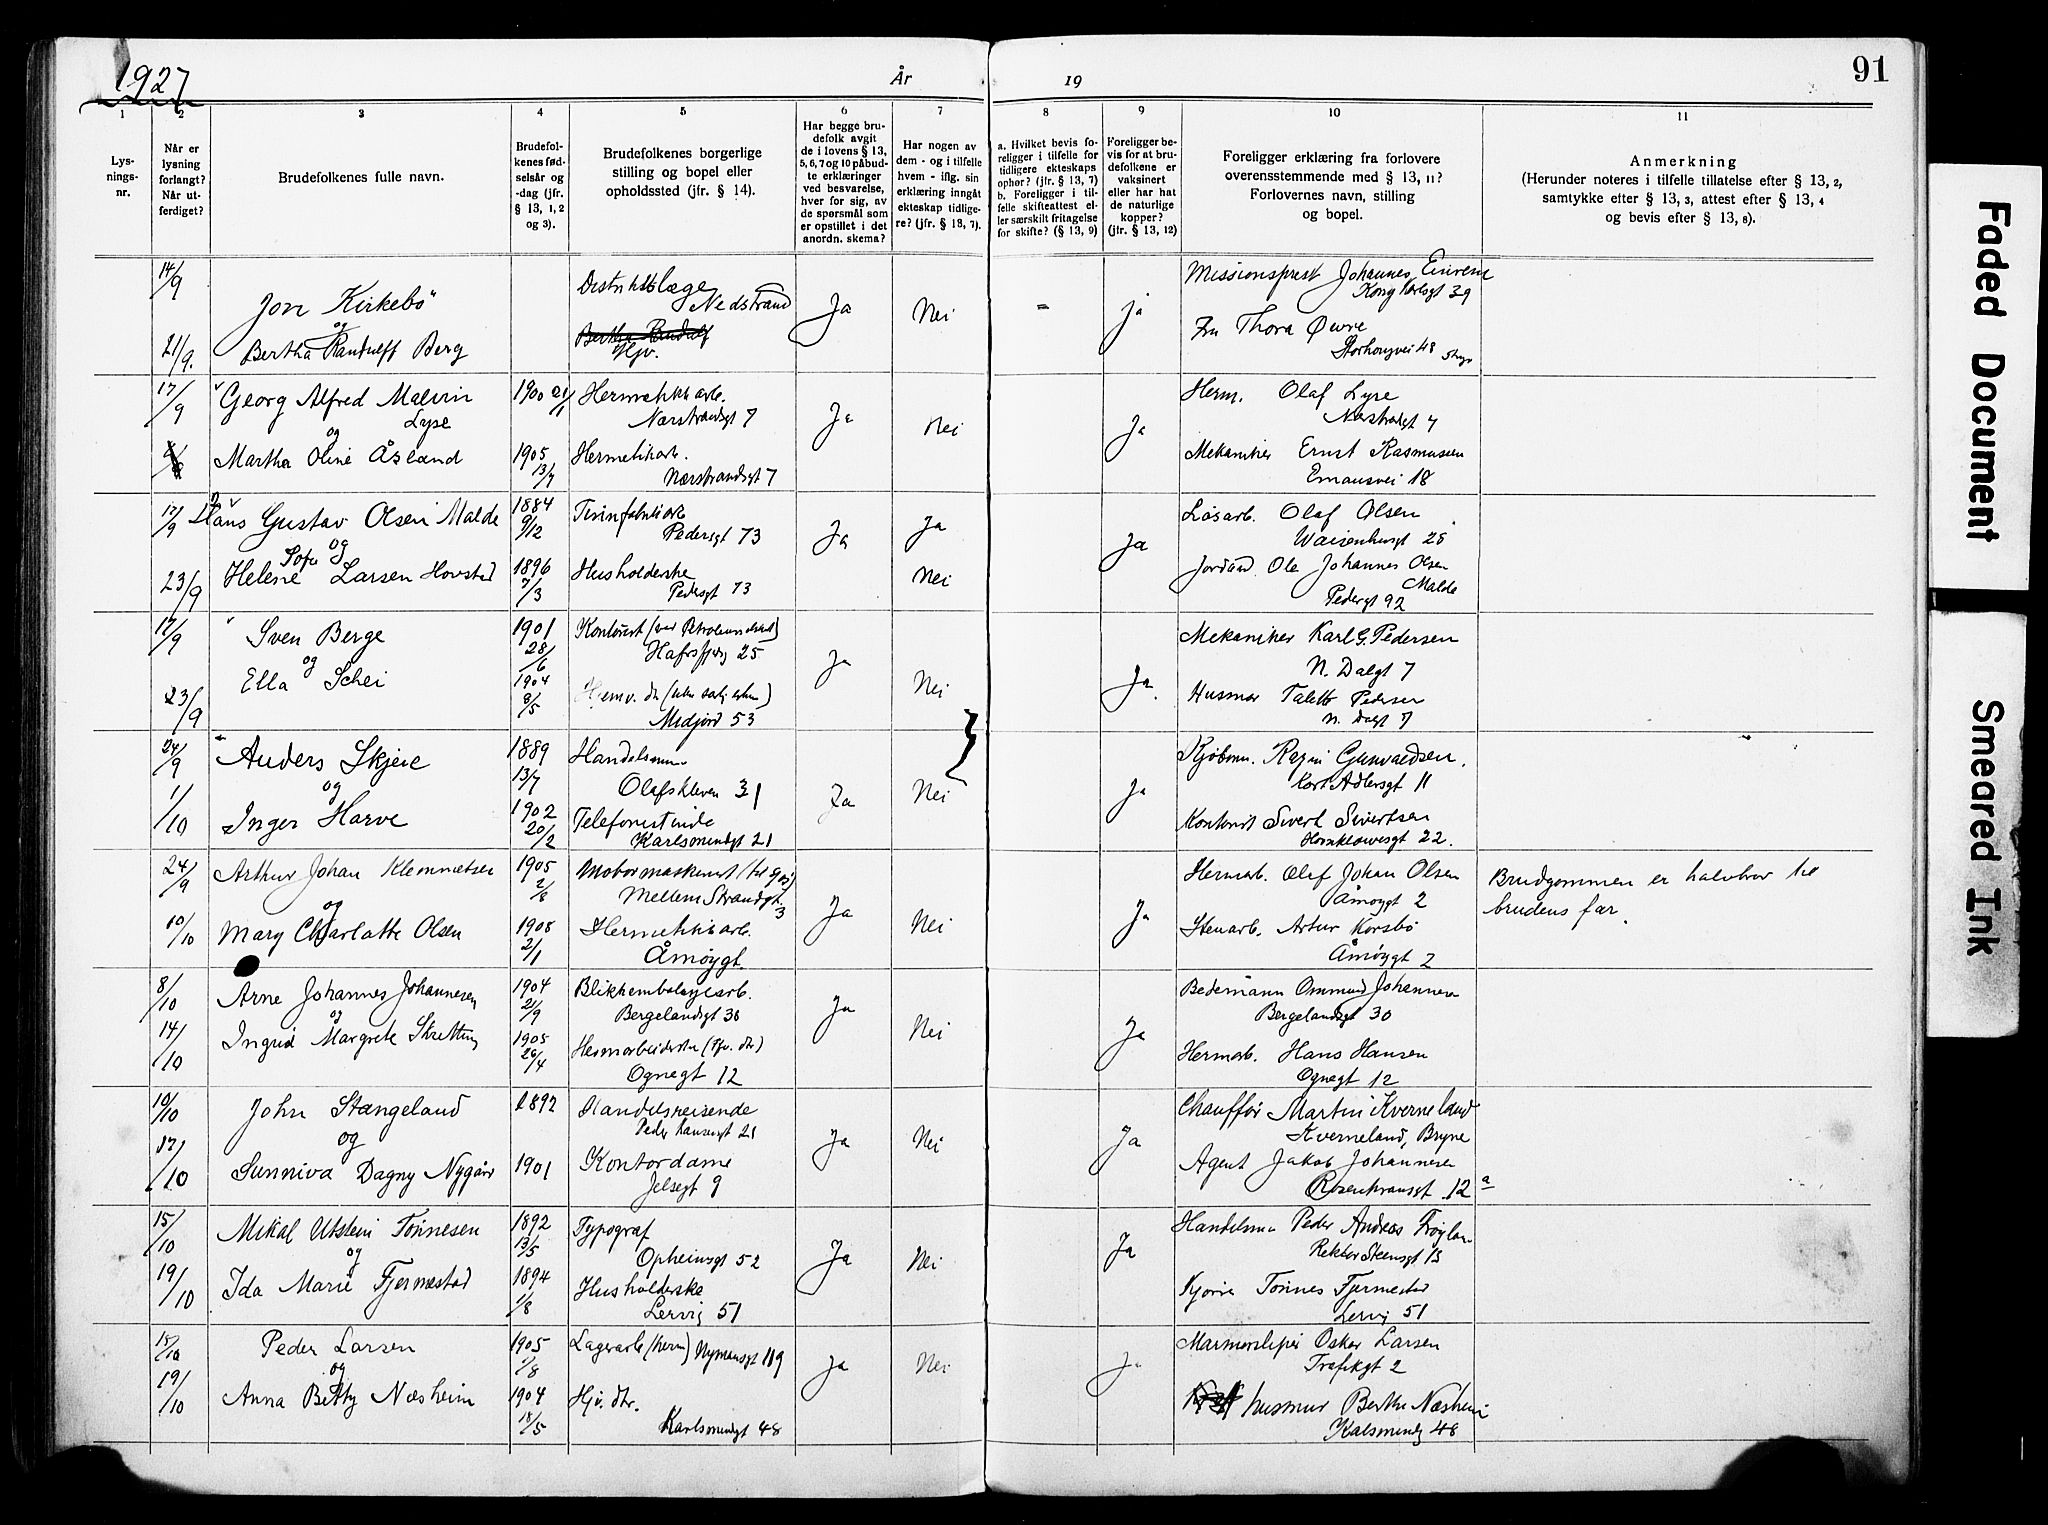 1927
År
19
91
1
2
3
4
5
6
7
8
9
10
11
Lysningsnr.
Når er lysning forlangt? Når utferdiget?
Brudefolkenes fulle navn.
Brudefolkenes fødselsår og -dag (jfr. § 13, 1, 2 og 3).
Brudefolkenes borgerlige stilling og bopel eller opholdssted (jfr. § 14).
Har begge brudefolk avgit de i lovens § 13, 5, 6, 7 og 10 påbudte erklæringer ved besvarelse, hver for sig, av de spørsmål som er opstillet i det anordn. skema?
Har nogen av dem - og i tilfelle hvem - iflg. sin erklæring inngått ekteskap tidligere? (jfr. § 13, 7).
a. Hvilket bevis foreligger i tilfelle for tidligere ekteskaps ophør? (jfr. § 13, 7) b. Foreligger i tilfelle skifteattest eller særskilt fritagelse for skifte? (§ 13, 9)
Foreligger bevis for at brudefolkene er vaksinert eller har hat de naturlige kopper? (jfr. § 13, 12)
Foreligger erklæring fra forlovere overensstemmende med § 13, 11? Forlovernes navn, stilling og bopel.
Anmerkning (Herunder noteres i tilfelle tillatelse efter § 13, 2, samtykke efter § 13, 3, attest efter § 13, 4 og bevis efter § 13, 8).
14/9
Jon Kirkebö
Distriktslæge
Nedstrand
Ja
Nei
-
ja
Missionsprest Johannes
Kong Karlsgt 39
og
21/9.
Bertha Randulff Berg
Hjv.
Fru Thora Øvre
Storhougvei 48
17/9
Georg Alfred Malvin
Lyse
1900 21/1
Hermetikkarb.
Nærstrandsgt 7
Ja
Nei
Ja
Herm. Olaf Lyse
Nærstrandsgt 7
og
Martha Oline Åsland
1905
13/7
Hermetikarb.
Nærstrandsgt 7
Mekaniker Ernst Rasmussen
Emausvei 18
17/9
Hans Gustav Olsen Malde
1884
9/12
Pedersgt 73
Ja
Ja
Ja
Løsarb. Olaf Olsen
Waisenhusgt 25
og
23/9
Helene Sofie Larsen Hovstad
1896
7/3
Husholderske
Pedersgt 73
Nei
Ole Johannes Olsen
Malde
Pedergt 92
17/9
Sven Berge
1901
28/6
Kontorist
25
Ja
Nei
Ja.
Mekaniker Karl G. Pedersen
N. Dalgt 7
og
23/9
Ella Schei
1904
8/5
53
Husmor Pedersen
N. Dalgt 7
24/9
Anders Skjeie
1889
13/7
Handelsmann
Olafskleven 31
Ja
Nei
Ja
Kjøbm. Gunvaldsen.
Cort Adlersgt 11
og
1/10
Inger Harve
1902
20/2
Telefonistinde
Karlsmindgt 21
Kontorist Sivert Sivertsen
Hornklovesgt 22.
24/9
Arthur Johan Klemmetsen
1905
2/8
Motormaskinist
Mellem Strandgt.
3
Ja
Nei
Ja
Hermarb. Olaf Johan Olsen
Åmøygt 2
Brudgommen er halvbror til
brudens far.
og
10/10
Mary Charlotte Olsen
1908
2/1
Hermetikkarb.
Åmøygt.
Stenarb. Artur Korsbø
Åmøygt 2
8/10
Arne Johannes Johannesen
1904
21/9
Blikkemballagearb.
Bergelandsgt 30
Ja
Nei
Ja
Bedemann Ommund Johannesen
Bergelandsgt 30
og
14/10
Ingrid Margrete Skretting
1905
26/4
Hermarbeiderske (Hjv. dtr)
Ognegt 12
Hermarb. Hans Hansen
Ognegt 12
10/10
John Stangeland
1892
Handelsreisende
Ja
Nei
Ja
Chauffør Martin Kverneland
Kverneland, Bryne
og
17/10
Sunniva Dagny Nygård
1901
Kontordame
Jelsegt 9
Agent Jakob Johannesen
Rosenkransgt 12 a
15/10
Mikal Utstein Tønnesen
1892
13/5
Typograf
Opheimsgt 52
Ja
Nei
Ja
Handelsm Peder Andreas Frøyland
Rektor Steensgt 13
og
19/10
Ida Marie Fjermestad
1894
1/8
Husholderske
Lervig 51
Tønnes Fjermestad
Lervig 51
15/10
Peder Larsen
1905
1/8
Lagerarb (herm) Nymansgt 119
Ja
Nei
Ja
Marmorsliper Oskar Larsen
Trafikgt 2
og
19/10
Anna Betty Næsheim
1904
18/5
Hjv. dtr.
Karlsmindgt 48
husmor Berthe Næsheim
Kalsmindg 48
Faded Document
Smeared Ink